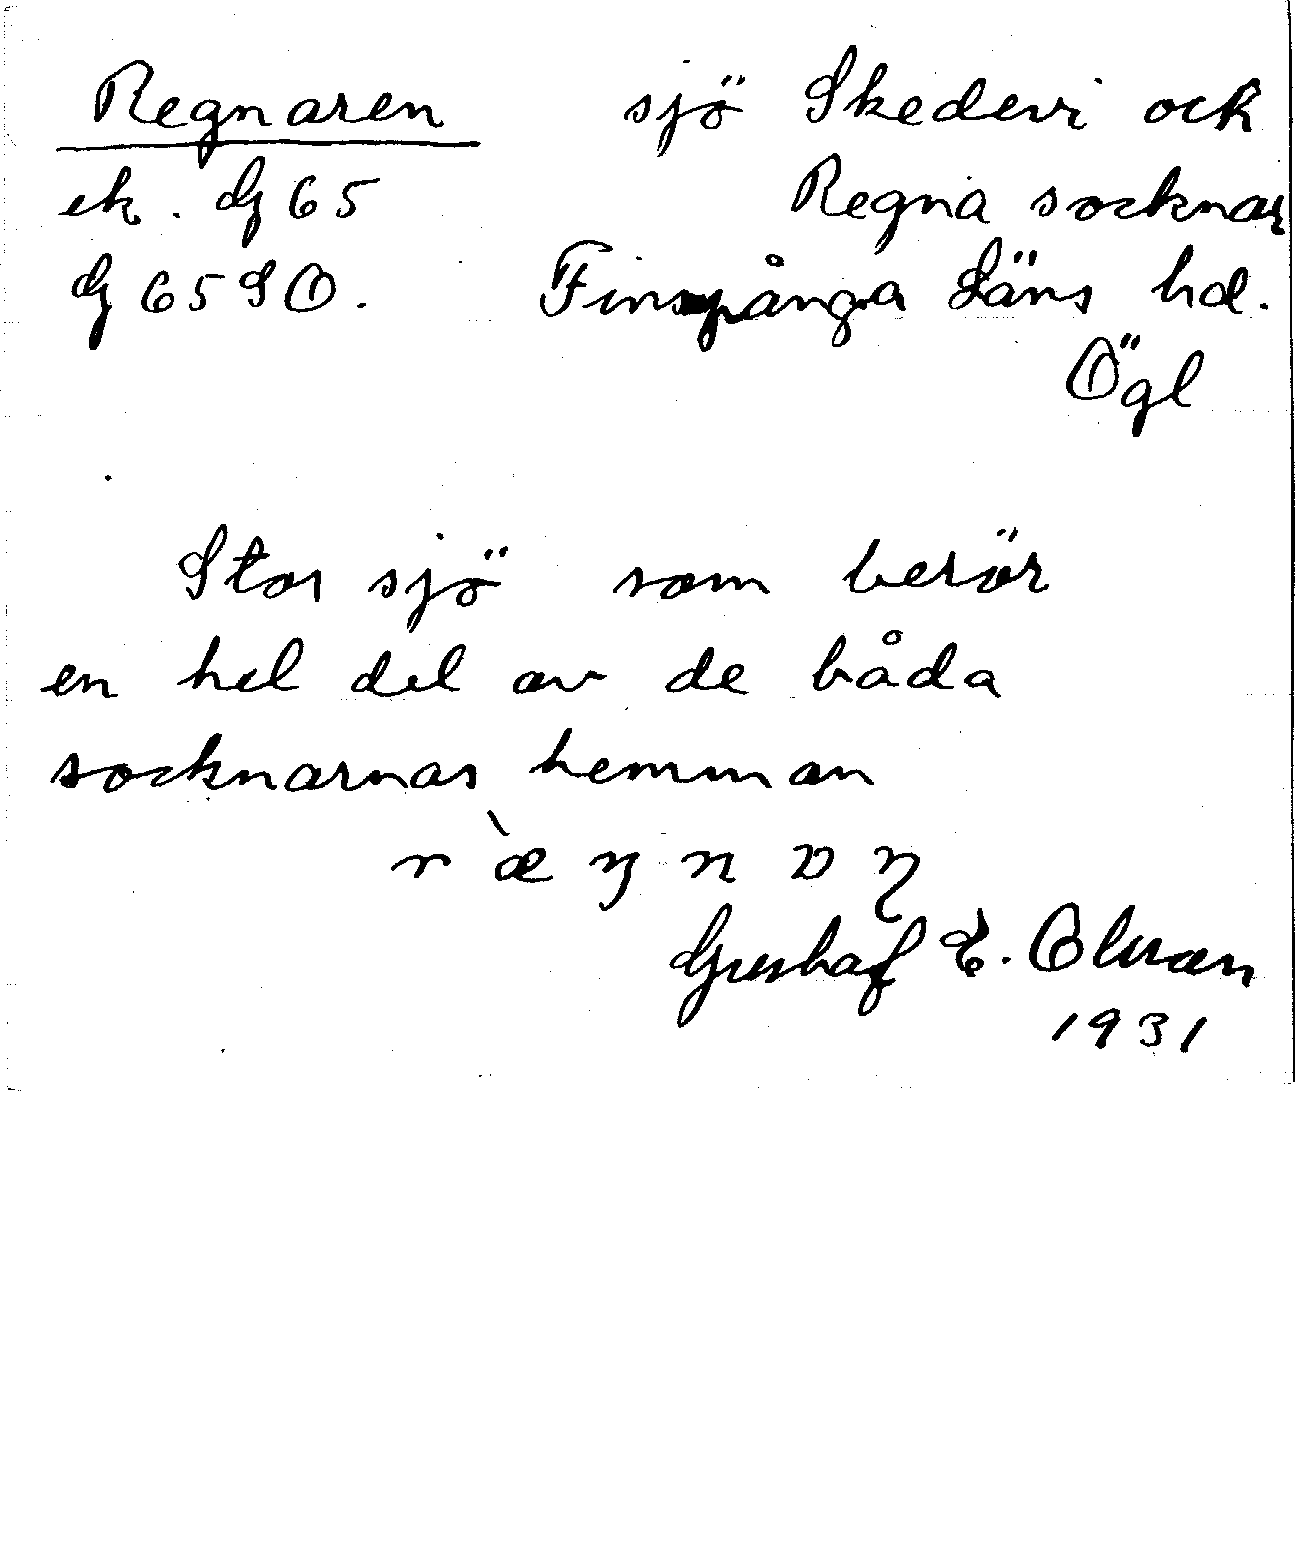 Regnaren sjö Skedevi och
ek. G 65 Regna socknar
G 65 SO. Finspånga Läns hd.
Ögl
Stor sjö som berör
en hel del av de båda
socknarnas hemman
Gustaf E. Olsson
1931